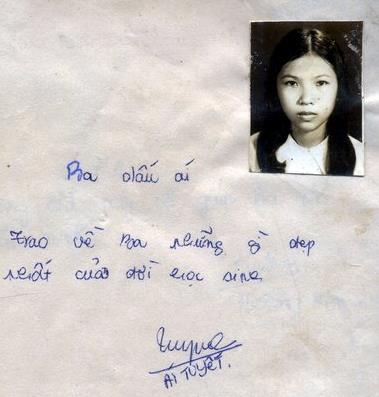 Ba dấu ái
Trao về Ba những gì đẹp
nhất của đời học sinh
ÁI TUYẾT.